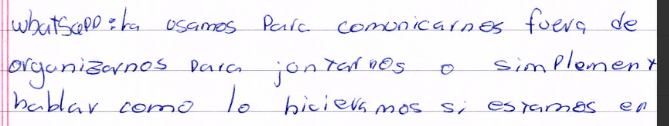 whatsapp: la usamos para comunicarnos fuera de
organizarnos para jontarnos o simplement
hablar como lo hicieramos si estamos en